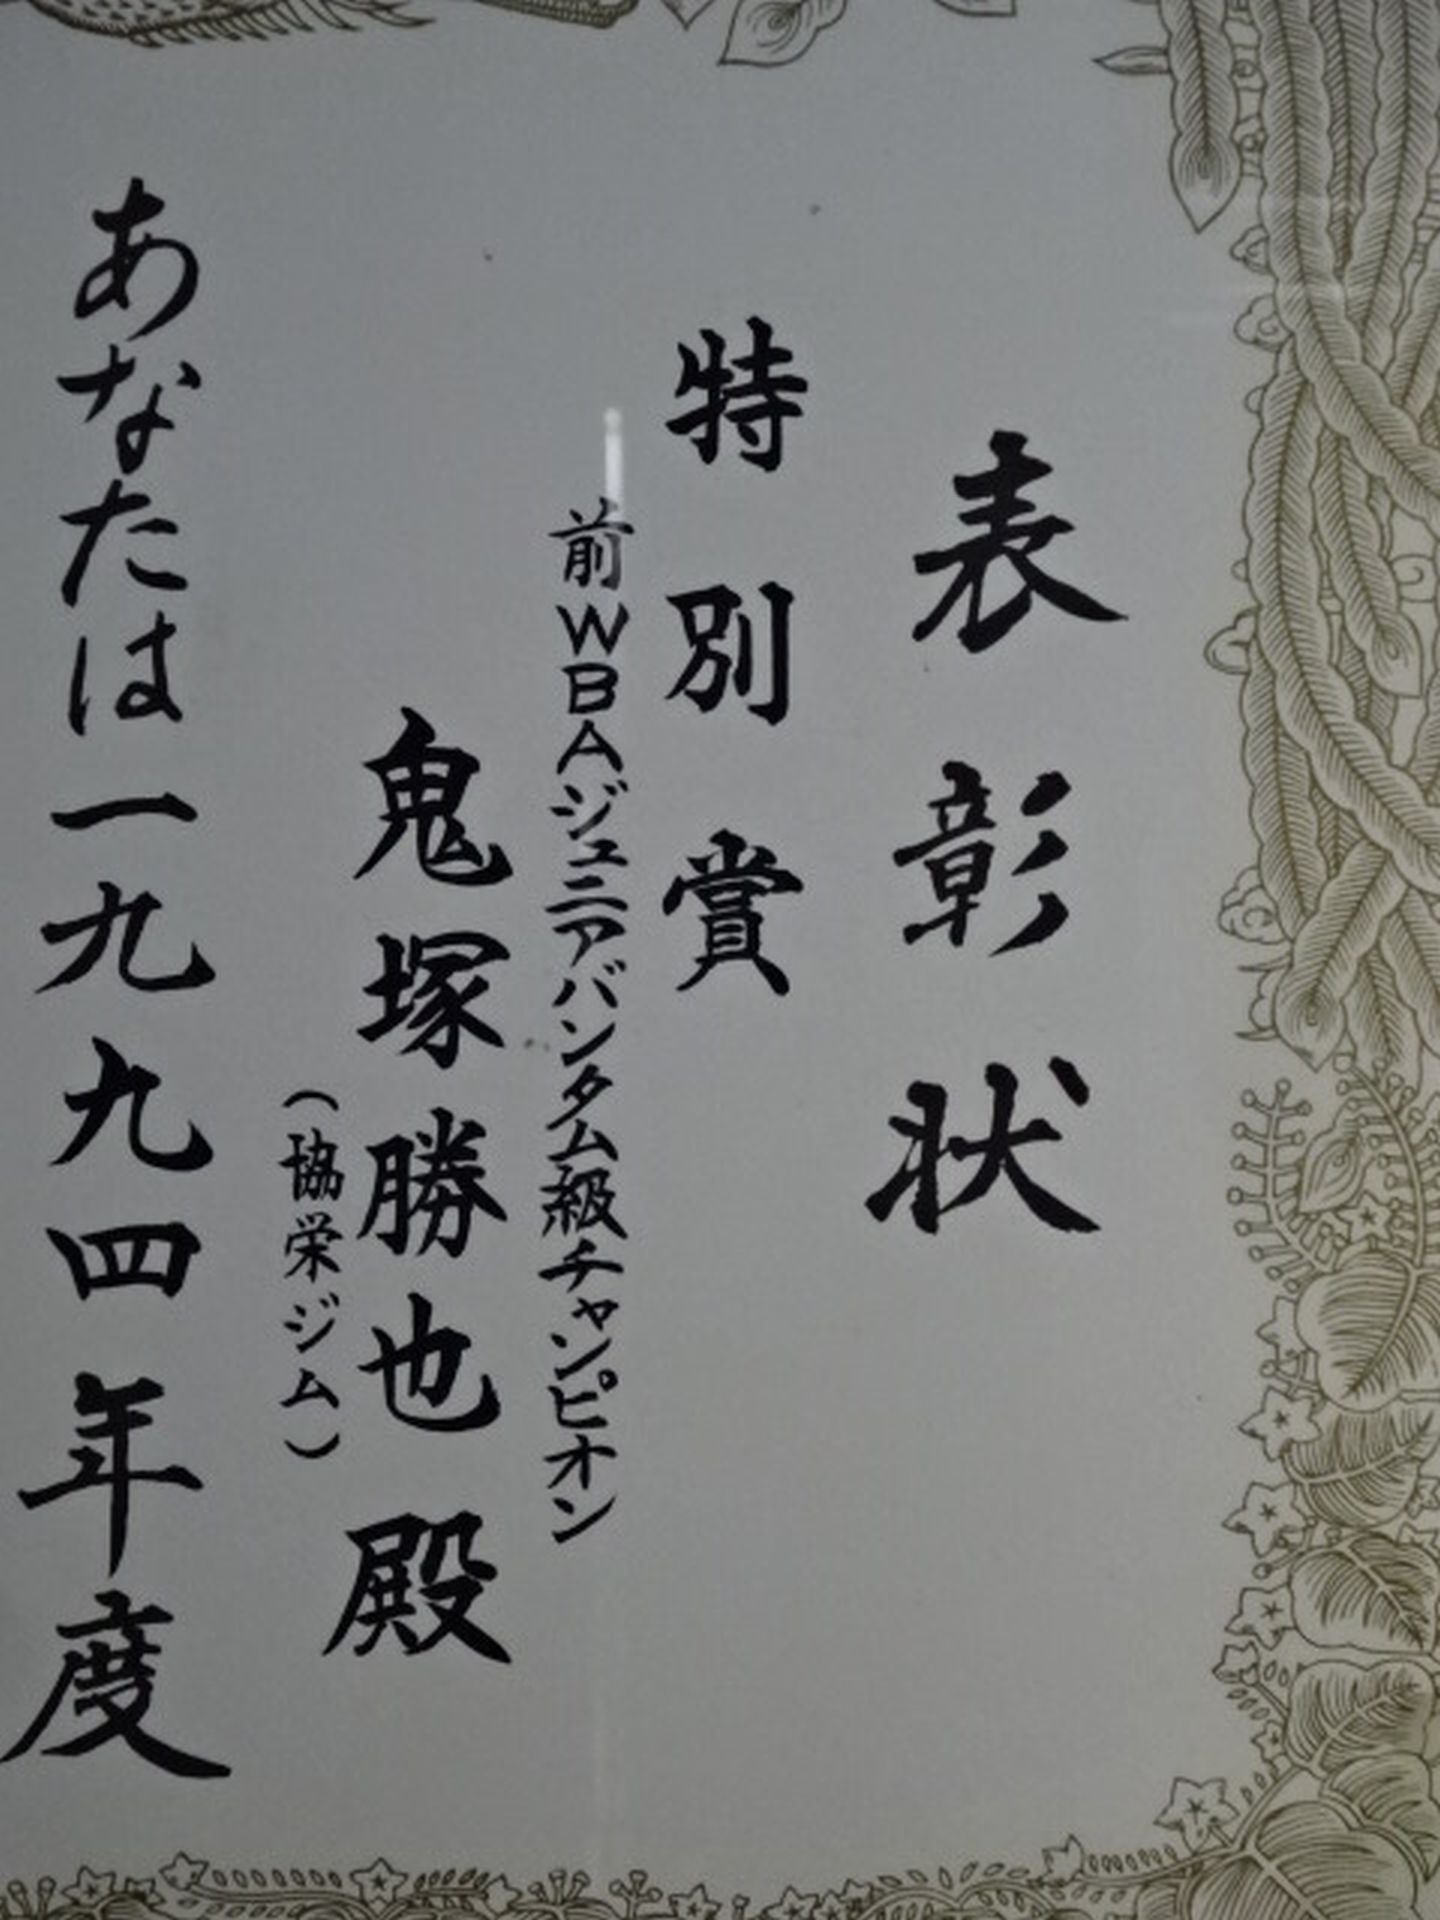 表彰状
特別賞
前WBAジュニアバンタム級チャンピオン
鬼塚勝也殿
（協栄ジム）
あなたは一九九四年度